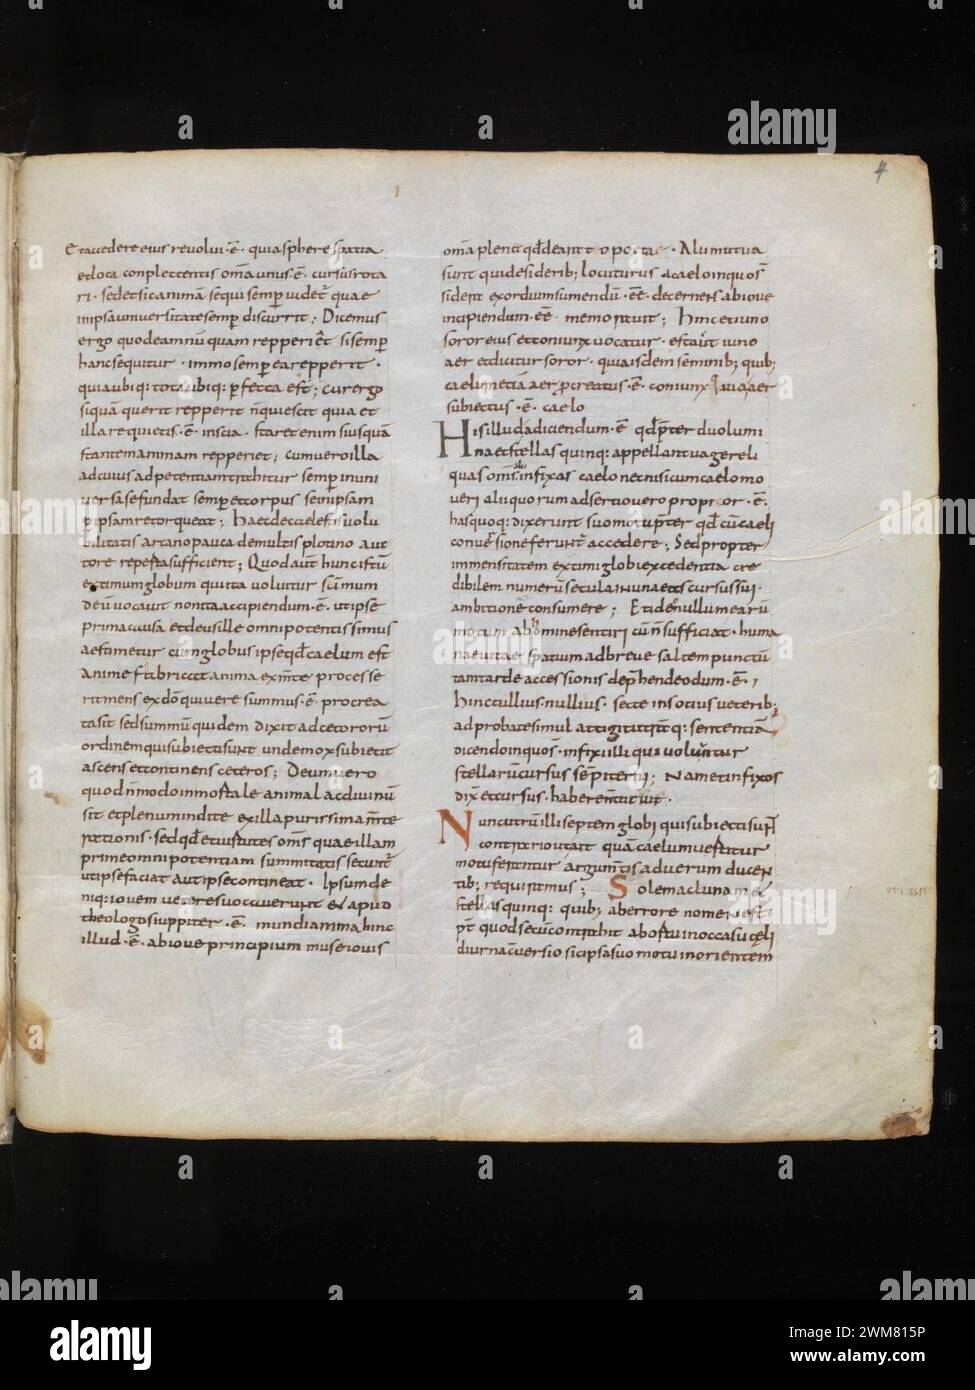 4
Et accedere eius revolui · ē · quia sphere spatia
et loca conplectentis om̄a unus · ē · cursus rota
ri · sed et sic animā sequi semp videt̄ quae
in ipsa universitate semp discurrit ; Dicemus
ergo quod eam nūquam repperiet si semp
hanc sequitur · immo semp ea repperit ·
quia ubiq: tota ubiq: pfecta est ; cur ergo
si quā querit repperit n̄ quiescit quia et
illa requietis · ē · inscia · staret enim si usquā
stantem animam repperiet ; cum vero illa
ad cuius adpetentiam trahitur semp in uni
versa se fundat semp et corpus se in ipsam
p ipsam retorqueat ; haec de celestis volu
bilitatis arcano pauca de multis plotino auc
tore reperta sufficient ; Quod aūt hunc istū
extimum globum qui ita volvitur summum
deū vocavit non ita accipiendum · ē · ut ipse
prima causa et deus ille omnipotentissimus
aestimetur cum globus ipse qd caelum est
anime fabrica sit anima ex mente processe
rit mens ex dō qui vere summus · ē · procrea
ta sit sed summū quidem dixit ad ceterorū
ordinem qui subiecti sunt unde mox subiecit
ascens et continens ceteros ; Deum vero
quod n̄ modo inmortale animal ac divinū
sit et plenum indite ex illa purissima mente
rationis · sed qd et virtutes om̄s quae illam
prime omnipotentiam summitatis secunt̄
aut ipse faciat aut ipse contineat · Ipsum de
niq: iovem veteres vocaverunt et apud
theologos iuppiter · ē · mundi anima hinc
illud · ē · ab iove principium muse iovis
om̄a plena
sunt qui de siderib; locuturus a caelo in quo s̄
sidera exordium sumendū · ēē · decernens ab iove
incipiendum · ēē · memoravit ; hinc et iuno
soror eius et coniunx vocatur · est aūt iuno
aer et dicitur soror · quia isdem seminib; quib;
caelum etiā aer pcreatus · ē · coniunx quia aer
subiectus · ē · caelo
His illud adiciendum · ē · qd pter duo lumi
na et stellas quinq: appellantur vage reli
quas om̄s alii infixas caelo nec nisi cum caelo mo
veri alii quorum adsertio vero propior · ē ·
has quoq: dixerunt suo motu pter qd cū caeli
conversione ferunt̄ accedere ; Sed propter
immensitatem extimi globi excedentia cre
dibilem numerū secula in una eas cursus sui ·
ambitione consumere ; Et ideo nullum earū
motum ab homine sentiri cū n̄ sufficiat · huma
nae vitae spatium ad breve saltem punctū
tam tarde accessionis dephendendum · ē ·
hinc tullius · nullius · secte inscius veterib;
adprobate simul attigit utrāq: sententiā
dicendo in quo s̄ · infixi illi qui volvuntur
stellarū cursus sēpiterni ; Nam et infixos
dixit et cursus · habere n̄ tacuit ·
Nunc utrū illi septem globi qui subiecti sunt
contrario ut ait quā caelum vertitur
motu ferantur argumtis ad verum ducen
tib; requiramus ; Solem ac lunam et
stellas quinq: quib; ab errore nomen est
pt̄ quod secū contrahit ab ortu in occasū celi
diurna cversio si ipsa suo motu in orientem